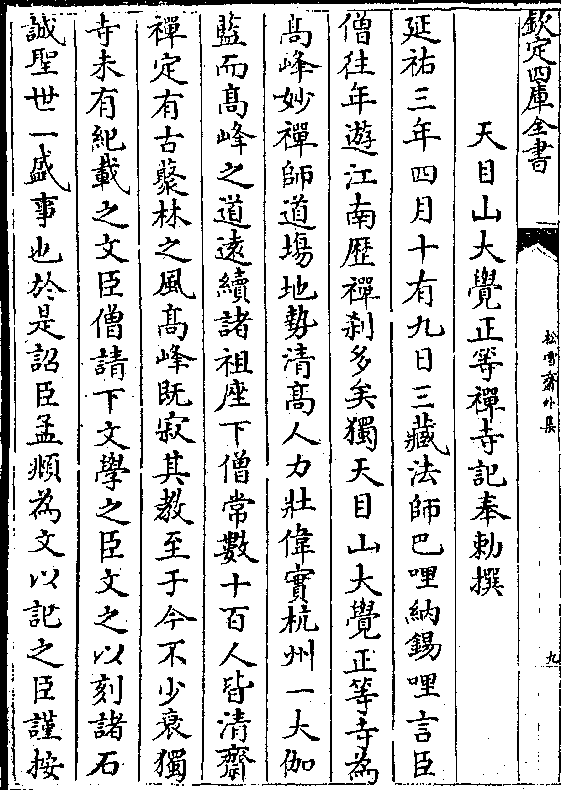 欽定四庫全書
松雪齋外集
九
天目山大覺正等禪寺記奉勅撰
延祐三年四月十有九日三藏法師巴哩納錫哩言臣
僧往年遊江南歷禪刹多矣獨天目山大覺正等寺為
髙峰妙禪師道場地勢清髙人力壯偉實杭州一大伽
藍而髙峰之道逺續諸祖座下僧常數十百人皆清齋
禪定有古藂林之風髙峰既寂其教至于今不少衰獨
寺未有紀載之文臣僧請下文學之臣文之以刻諸石
誠聖世一盛事也於是詔臣孟頫為文以記之臣謹按